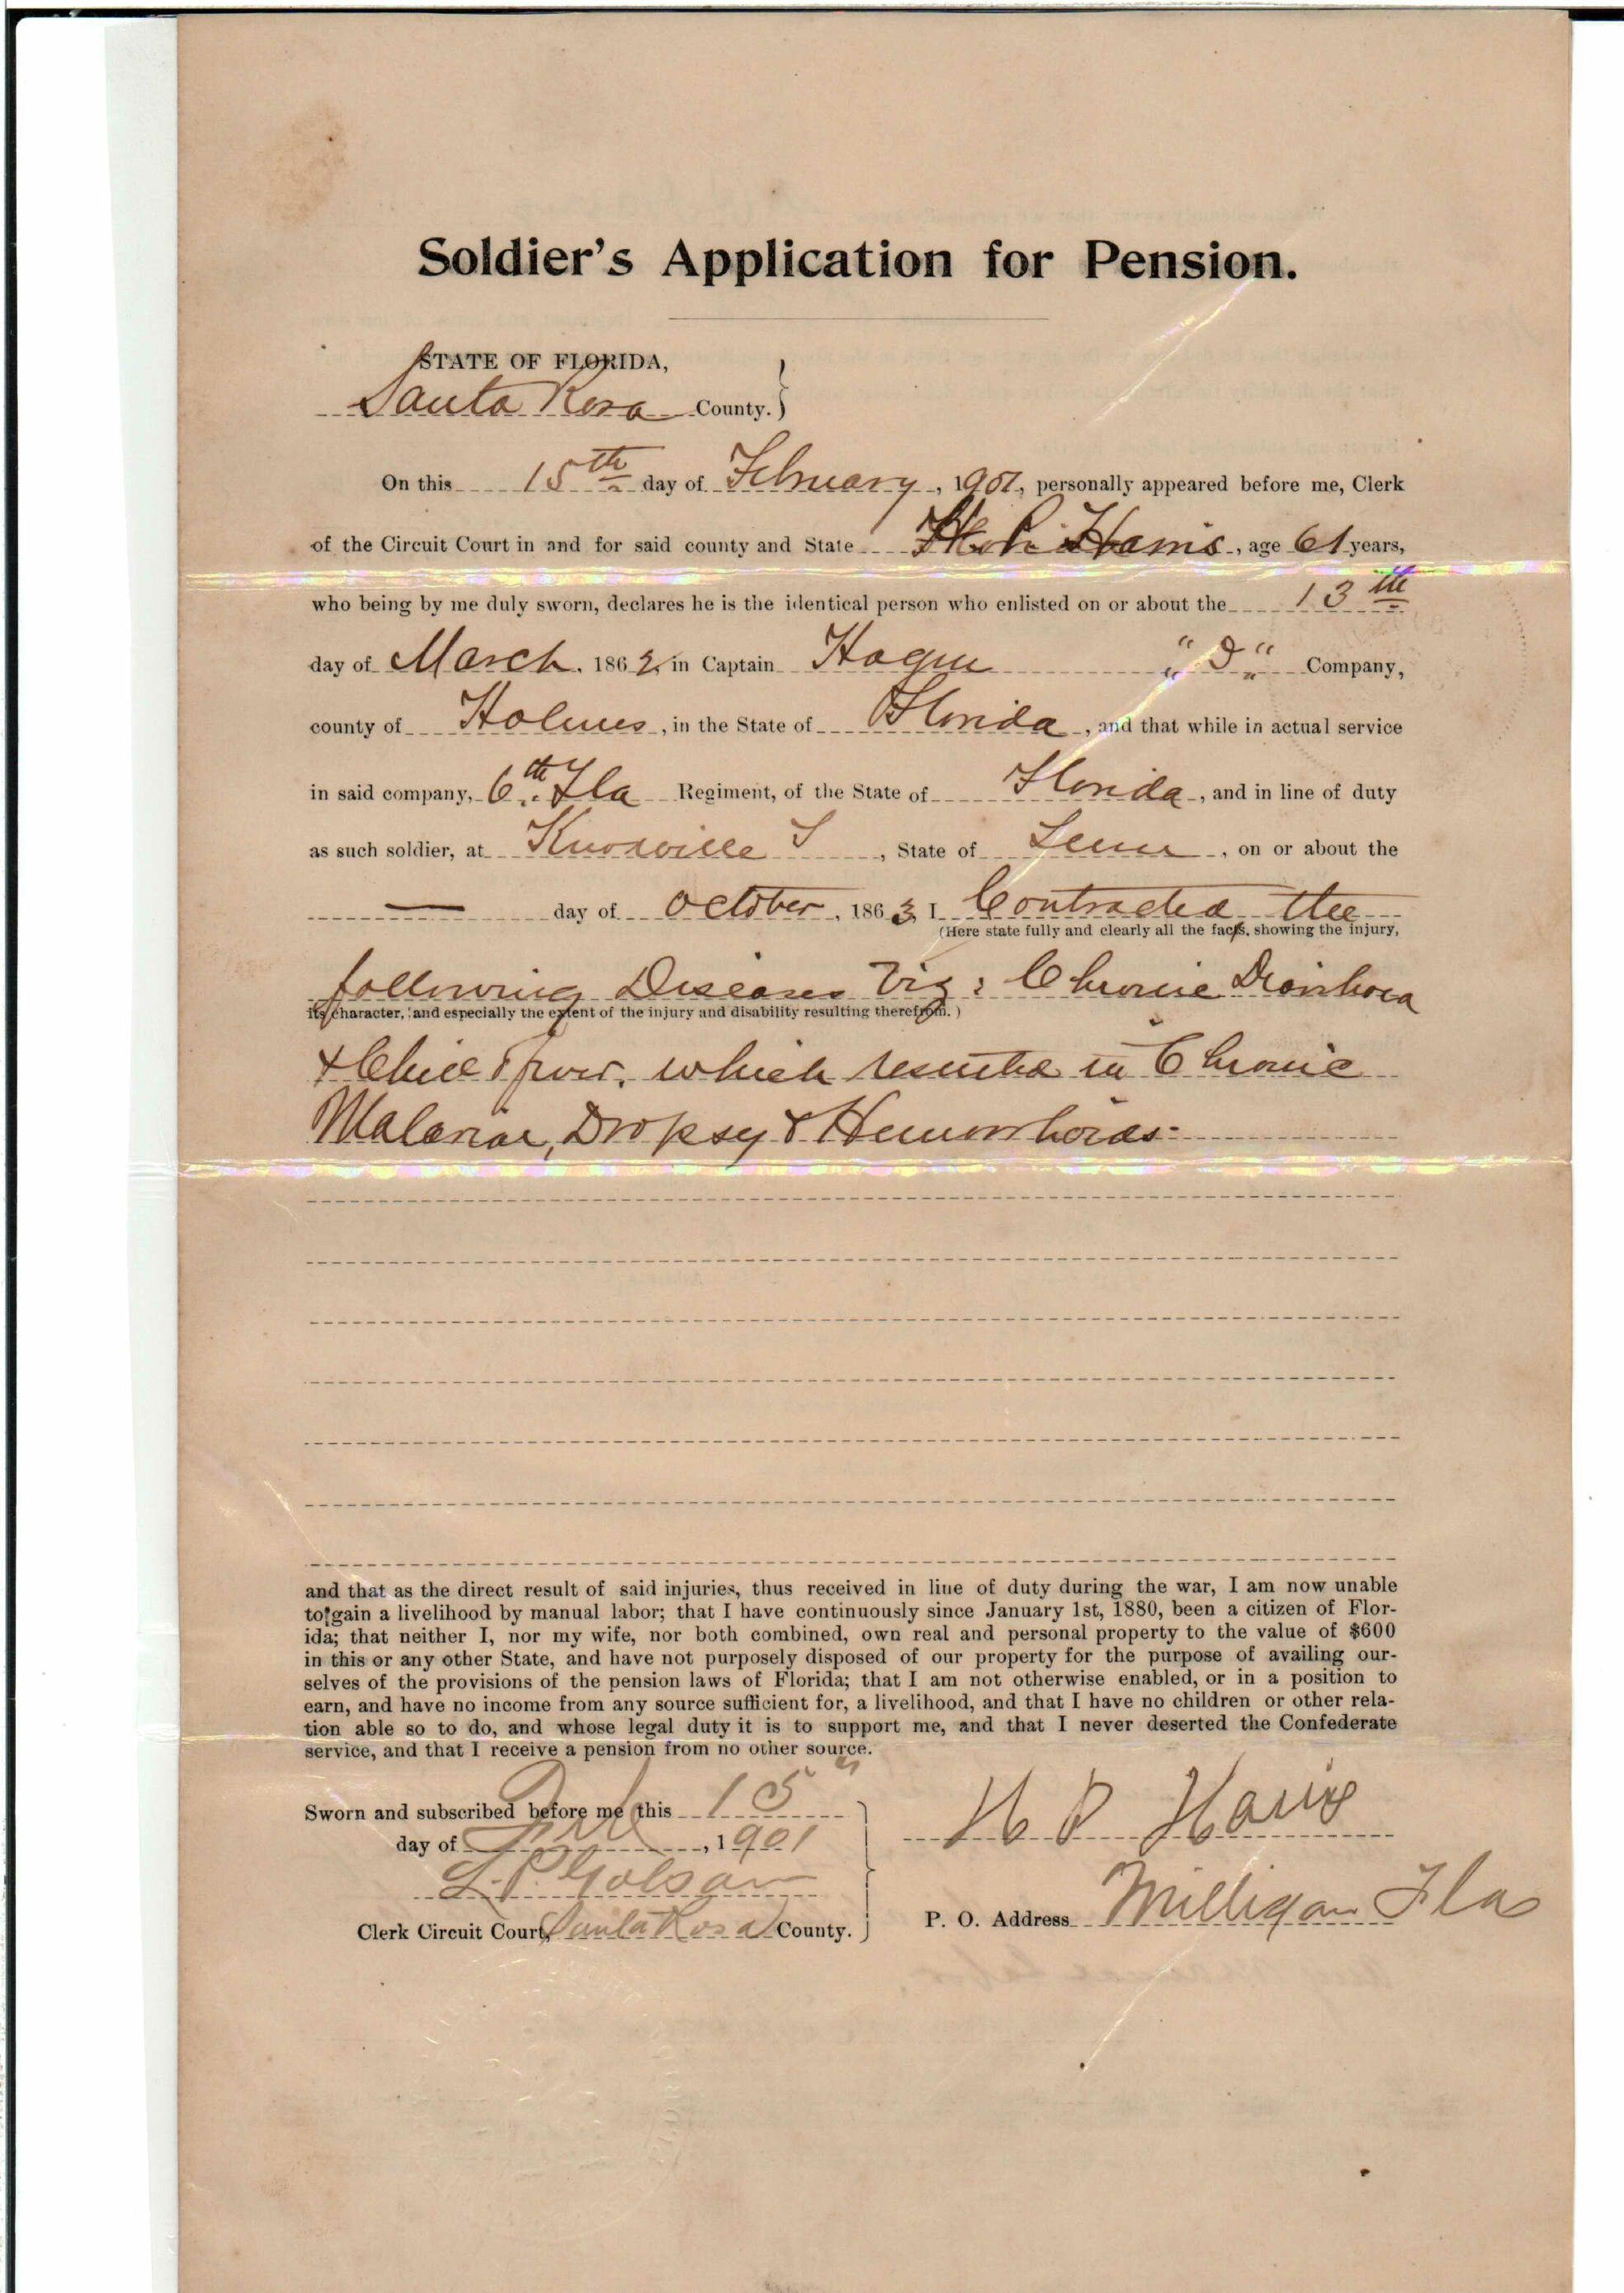 Soldier's Application for Pension.
STATE OF FLORIDA,
Santa Rosa County.
On this 15th day of February, 1901, personally appeared before me, Clerk
of the Circuit Court in and for said county and State H. P. Harris, age 61 years,
who being by me duly sworn, declares he is the identical person who enlisted on or about the 13th
day of March. 1862, in Captain Hagan Company,
county of Holmes, in the State of Florida, and that while in actual service
in said company, 6th Fla Regiment, of the State of Florida, and in line of duty
as such soldier, at Knoxville, State of Tenn, on or about the
— day of October, 1863, I Contracted the
(Here state fully and clearly all the facts, showing the injury,
following Diseases Viz: Chronic Diarrhoea
its character, and especially the extent of the injury and disability resulting therefrom.)
& Chill & fever, which resulted in Chronic
Malariae, Dropsy & Hemorrhoids
and that as the direct result of said injuries, thus received in line of duty during the war, I am now unable
to gain a livelihood by manual labor; that I have continuously since January 1st, 1880, been a citizen of Flor-
ida; that neither I, nor my wife, nor both combined, own real and personal property to the value of $600
in this or any other State, and have not purposely disposed of our property for the purpose of availing our-
selves of the provisions of the pension laws of Florida; that I am not otherwise enabled, or in a position to
earn, and have no income from any source sufficient for, a livelihood, and that I have no children or other rela-
tion able so to do, and whose legal duty it is to support me, and that I never deserted the Confederate
service, and that I receive a pension from no other source.
Sworn and subscribed before me this 15
day of Feb, 1901
L. P. Golson
Clerk Circuit Court, Santa Rosa County.
H P Harris
P. O. Address Milligan Fla